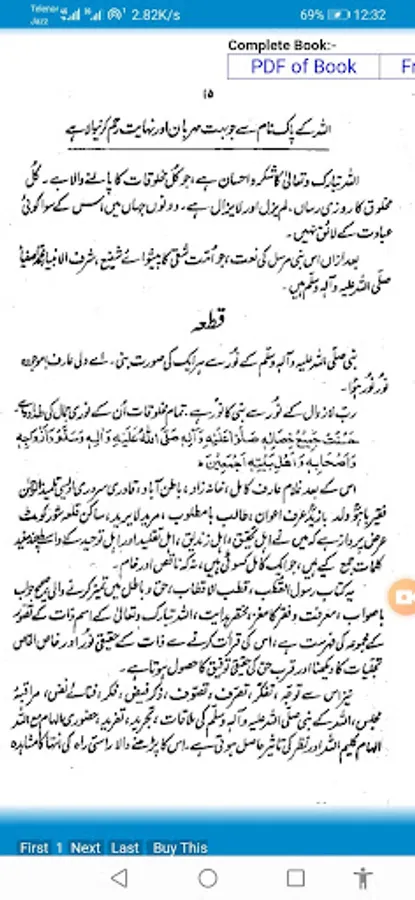 Telenor
Jazz
2.82K/s
69%
12:32
Complete Book:-
PDF of Book
Fr
۱۵
اللہ کے پاک نام سے جو بہت مہربان اور نہایت رحم کرنیوالا ہے
اللہ تبارک وتعالیٰ کا شکر و احسان ہے، جو کل مخلوقات کا پالنے والا ہے۔ کل
مخلوق کا روزی رساں، لم یزل اور لا یزال ہے۔ دونوں جہاں میں اس کے سوا کوئی
عبادت کے لائق نہیں۔
بعد ازاں اس نبی مرسل کی نعت، جو اُمت کا پیشوائے شفیع، شرف الانبیا
صلی اللہ علیہ وآلہٖ وسلم ہیں۔
قطعہ
نبی صلی اللہ علیہ وآلہٖ وسلم کے نور سے ہر ایک کی صورت بنی۔ اے ولی عارف
نور نور ہوا۔
ربّ لازوال کے نور سے نبی کا نور ہے۔ تمام مخلوقات اُن کے نوری جمال کی
صَلَّی اللهُ عَلَيْهِ وَاٰلِهٖ وَسَلَّمَ وَاَزْوَاجِهٖ
وَاَصْحَابِهٖ وَاَهْلِ بَيْتِهٖ اَجْمَعِيْنَ۔
اس کے بعد غلام عارف کامل، خانہ زاد، باطن آباد، قادری سروری
فقیر باہو ولد بازید عرف اعوان، طالب بامطلوب، مرید لا یرید، ساکن قلعہ شورکوٹ
عرض پرداز ہے کہ میں نے اہل تحقیق، اہل زندیق، اہل تقلید اور اہل توحید کے واسطے چند مفید
کلمات جمع کیے ہیں، جو ایک کامل کسوٹی ہیں، نہ کہ ناقص اور خام۔
یہ کتاب رسول القلب، قطب الاقطاب، حق و باطل میں تمیز کرنے والی صحیح جواب
باصواب، معرفت و فقر کا مغز، مختصر ہدایت، اللہ تبارک وتعالیٰ کے اسم ذات کے تصور
کے مجموعہ کی فہرست ہے، اس کی قرأت کرنے سے ذات کے حقیقی نور اور خاص الخاص
تجلیات کا دیکھنا اور قرب حق کی حقیقی توفیق کا حصول ہوتا ہے۔
نیز اس سے توجہ، تفکر، تصرف، تصوف، ذکر فیض، فکر، فنائے نفس، مراقبۂ
مجلس، اللہ کے نبی صلی اللہ علیہ وآلہٖ وسلم کی ملاقات، تجرید، تفرید، حضوری الہام مع اللہ
الہام کلیم اللہ اور نظر کی تاثیر حاصل ہوتی ہے۔ اس کا پڑھنے والا راستی راہ کی انتہا کا مشاہدہ
First 1 Next Last Buy This